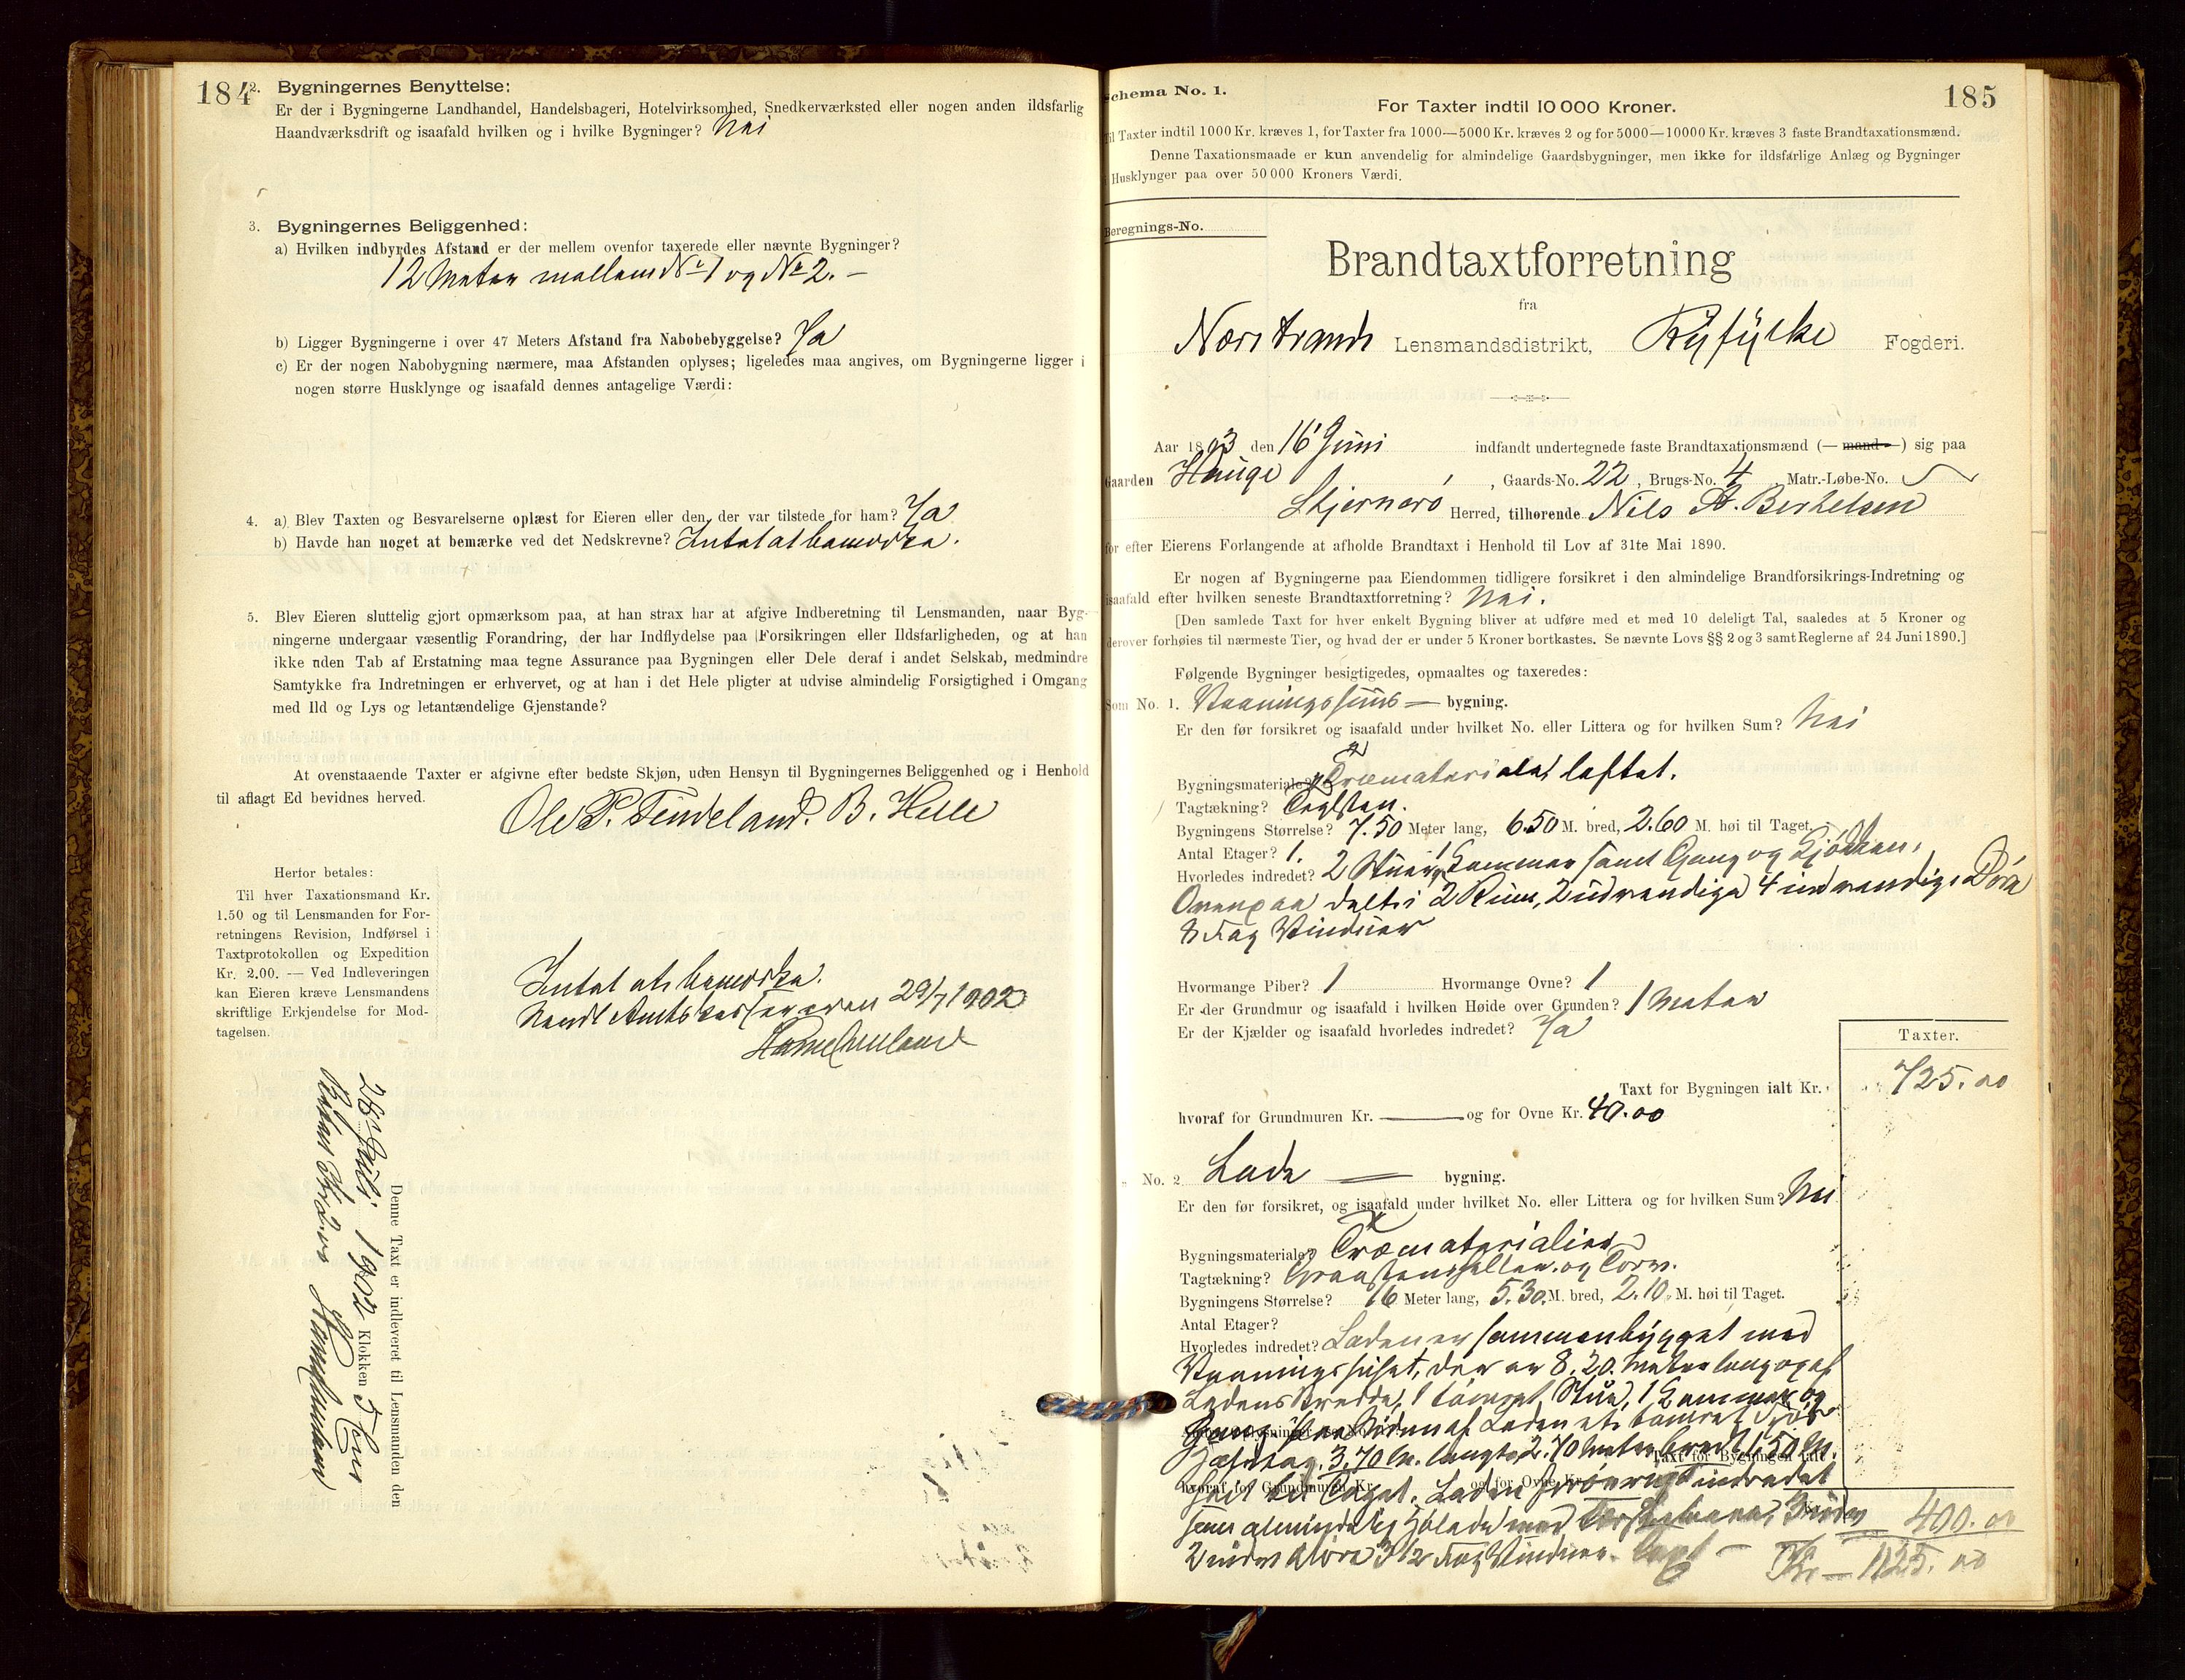 184
2. Bygningernes Benyttelse:
Er der i Bygningerne Landhandel, Handelsbageri, Hotelvirksomhed, Snedkerværksted eller nogen anden ildsfarlig
Haandværksdrift og isaafald hvilken og i hvilke Bygninger? Nei
3. Bygningernes Beliggenhed:
a) Hvilken indbyrdes Afstand er der mellem ovenfor taxerede eller nævnte Bygninger?
12 Meter mellem No 1 og No 2. —
b) Ligger Bygningerne i over 47 Meters Afstand fra Nabobebyggelse? Ja
c) Er der nogen Nabobygning nærmere, maa Afstanden oplyses; ligeledes maa angives, om Bygningerne ligger i
nogen større Husklynge og isaafald dennes antagelige Værdi:
4. a) Blev Taxten og Besvarelserne oplæst for Eieren eller den, der var tilstede for ham? Ja
b) Havde han noget at bemærke ved det Nedskrevne? Intet at bemærke.
5. Blev Eieren sluttelig gjort opmærksom paa, at han strax har at afgive Indberetning til Lensmanden, naar Byg-
ningerne undergaar væsentlig Forandring, der har Indflydelse paa Forsikringen eller Ildsfarligheden, og at han
ikke uden Tab af Erstatning maa tegne Assurance paa Bygningen eller Dele deraf i andet Selskab, medmindre
Samtykke fra Indretningen er erhvervet, og at han i det Hele pligter at udvise almindelig Forsigtighed i Omgang
med Ild og Lys og letantændelige Gjenstande?
At ovenstaaende Taxter er afgivne efter bedste Skjøn, uden Hensyn til Bygningernes Beliggenhed og i Henhold
til aflagt Ed bevidnes herved.
Ole P. Tendeland. B. Helle
Herfor betales:
Til hver Taxationsmand Kr.
1.50 og til Lensmanden for For-
retningens Revision, Indførsel i
Taxtprotokollen og Expedition
Kr. 2.00. — Ved Indleveringen
kan Eieren kræve Lensmandens
skriftlige Erkjendelse for Mod-
tagelsen.
Intet at bemærke.
29/7 1902
Denne Taxt er indleveret til Lensmanden den
28 Juli 1902 Klokken 5
Schema No. 1.
185
For Taxter indtil 10 000 Kroner.
Til Taxter indtil 1000 Kr. kræves 1, for Taxter fra 1000—5000 Kr. kræves 2 og for 5000—10000 Kr. kræves 3 faste Brandtaxationsmænd.
Denne Taxationsmaade er kun anvendelig for almindelige Gaardsbygninger, men ikke for ildsfarlige Anlæg og Bygninger
i Husklynger paa over 50 000 Kroners Værdi.
Beregnings-No.
Brandtaxtforretning
fra
Nærstrands Lensmandsdistrikt, Ryfylke Fogderi.
Aar 1893 den 16 Juni indfandt undertegnede faste Brandtaxationsmænd (— mand —) sig paa
Gaarden Hauge , Gaards-No. 22, Brugs-No. 4 Matr.-Løbe-No.
Skjernerø Herred, tilhørende Nils A. Berkelsen
for efter Eierens Forlangende at afholde Brandtaxt i Henhold til Lov af 31te Mai 1890.
Er nogen af Bygningerne paa Eiendommen tidligere forsikret i den almindelige Brandforsikrings-Indretning og
isaafald efter hvilken seneste Brandtaxtforretning? Nei.
[Den samlede Taxt for hver enkelt Bygning bliver at udføre med et med 10 deleligt Tal, saaledes at 5 Kroner og
derover forhøies til nærmeste Tier, og hvad der er under 5 Kroner bortkastes. Se nævnte Lovs §§ 2 og 3 samt Reglerne af 24 Juni 1890.]
Følgende Bygninger besigtigedes, opmaaltes og taxeredes:
Som No. 1. Vaaningshuus — bygning.
Er den før forsikret og isaafald under hvilket No. eller Littera og for hvilken Sum? Nei
Bygningsmateriale? Træmaterialer laftet.
Tagtækning? Teglsten.
Bygningens Størrelse? 7.50 Meter lang, 6.50 M. bred, 2.60 M. høi til Taget.
Antal Etager? 1.
Hvorledes indredet? 2 Stuer, 1 Kammer samt Gang og Kjøkken,
Ovenpaa delt i 2 Rum, 2 udvendige 4 indvendige Døre
8 Fag Vinduer
Hvormange Piber? 1 Hvormange Ovne? 1
Er der Grundmur og isaafald i hvilken Høide over Grunden? 1 Meter
Er der Kjælder og isaafald hvorledes indredet? Ja
Taxter.
Taxt for Bygningen ialt Kr. 725.00
hvoraf for Grundmuren Kr. — og for Ovne Kr. 40.00
" No. 2 Lade — bygning.
Er den før forsikret, og isaafald under hvilket No. eller Littera og for hvilken Sum? Nei
Bygningsmateriale? Træmaterialier
Tagtækning? Graastensheller og Torv.
Bygningens Størrelse? 16 Meter lang, 5.30 M. bred, 2.10 M. høi til Taget.
Antal Etager?
Hvorledes indredet? Laden er sammenbygget med
Vaaningshuset, der er 8.20 Meter lang og af
Ladens Bredde, 1 tømret Stue, 1 Kammer og
Gang, paa Siden af Laden et tømret Fjøs
3.70 M. langt, 2.70 Meter bredt 1.50 M.
høit til Taget. Laden forøvrigt indredet
Taxt for Bygningen ialt
hvoraf for Grundmuren Kr. og for Ovne Kr.
som almindelig Hølade med
400.00
Døre 2 Fag Vinduer.
Kr — 1125.00